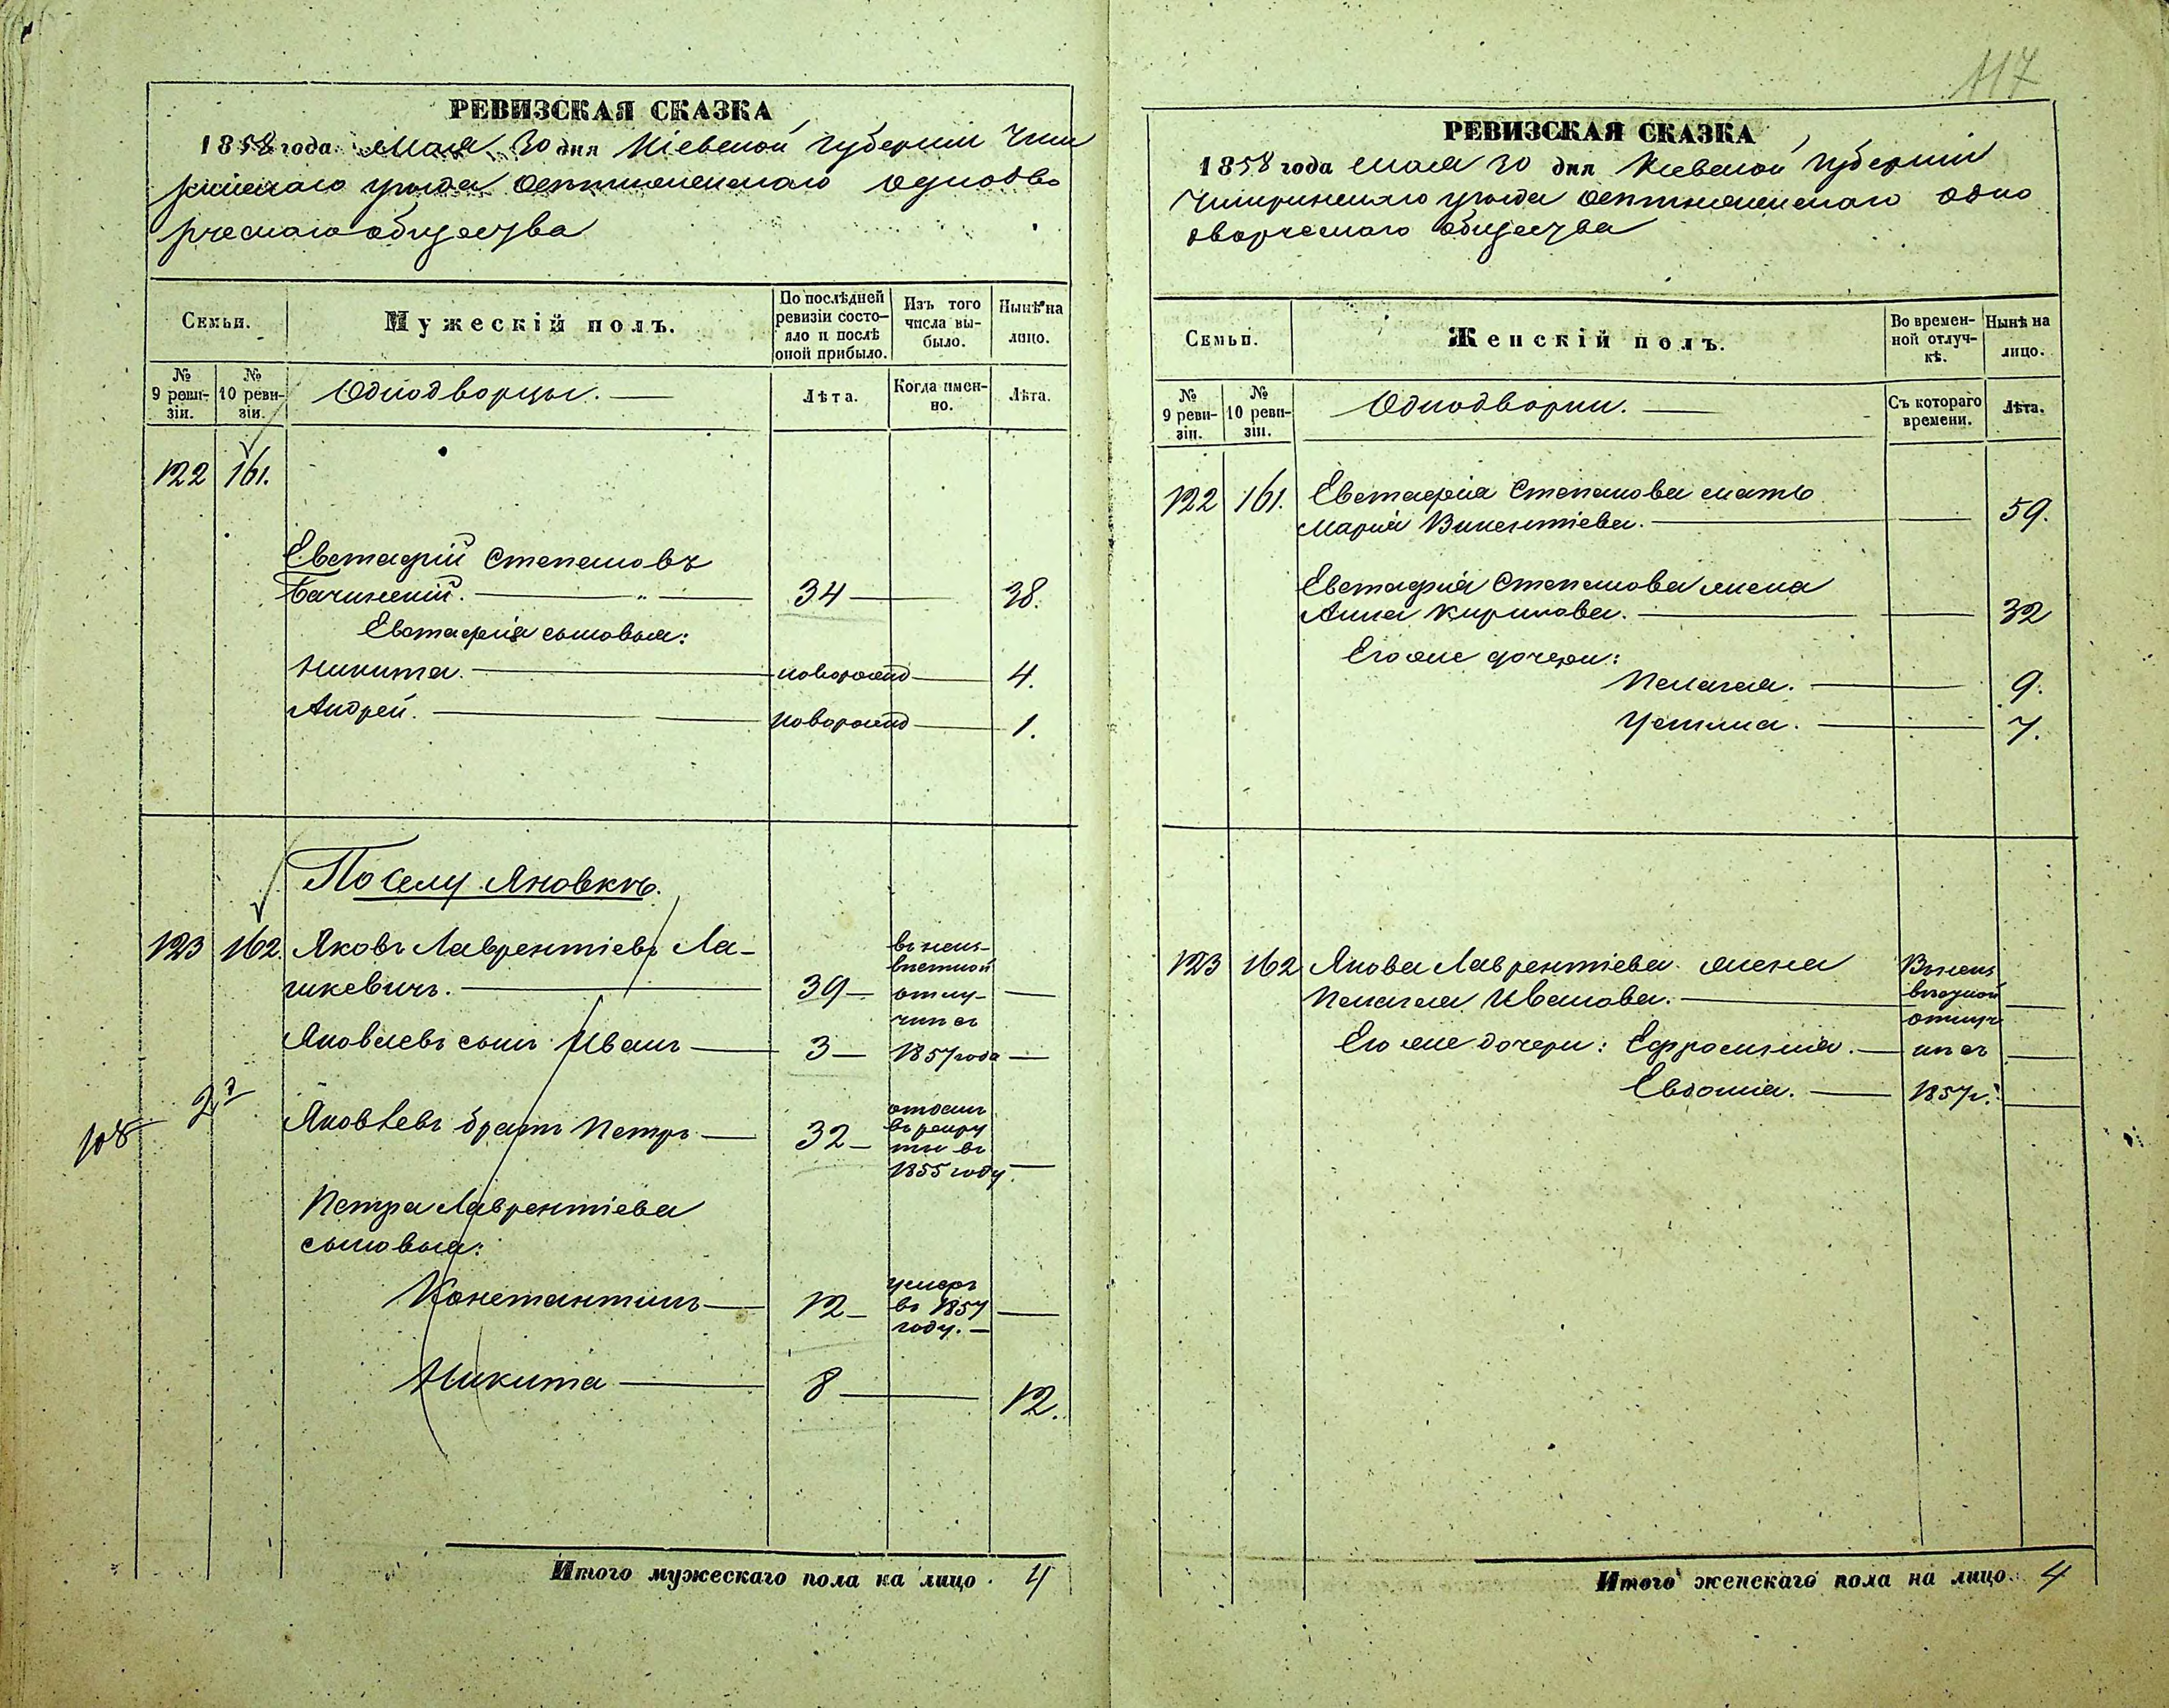 117
РЕВИЗСКАЯ СКАЗКА
1858 года Мая 30 дня Кіевской губерніи Чиги
ринскаго уезда одно дво
рческаго общества
Семьи.
Мужескій полъ.
По послѣдней ревизіи состо-яло и послѣ оной прибыло.
Изъ того числа вы-было.
Нынѣ на лицо.
№ 9 реви-зіи.
№ 10 реви-зіи.
Однодворцы.
Лѣта.
Когда имен-но.
Лѣта.
122 161.
Евстафій Степановъ
Бачинскій. 34 38.
Евстафія сыновья:
Никита. новорожд 4.
Андрей. новорожд 1.
По селу Яновкѣ.
123 162. Яковъ Лаврентіевъ Ла-
шкевичъ. 39
въ неиз-
вѣстной
отлу-
чки съ
1857 года
Яковлевъ сынъ Иванъ 3
Яковлевъ братъ Петръ 32
отданъ
въ рекру
ты въ
1855 году
Петра Лаврентіева
сыновья:
Константинъ 12
умеръ
въ 1857
году.
Никита 8 12.
Итого мужескаго пола на лицо 4
РЕВИЗСКАЯ СКАЗКА
1858 года мая 30 дня Кіевской губерніи
Чигиринскаго уезда одно
дворческаго общества
Семьи.
Женскій полъ.
Во времен-ной отлуч-кѣ.
Нынѣ на лицо.
№ 9 реви-зіи.
№ 10 реви-зіи.
Однодворки.
Съ котораго времени.
Лѣта.
122 161. Евстафія Степанова мать
Марія Викентіева. 59.
Евстафія Степанова жена
Анна Кирилова. 32
Его же дочери:
Пелагея. 9.
Устина. 7.
123 162 Якова Лаврентіева жена
Пелагея Иванова.
Его же дочери: Ефросинія.
Евдокія.
Въ неиз
вѣстной
отлуч
ки съ
1857 г.
Итого женскаго пола на лицо. 4